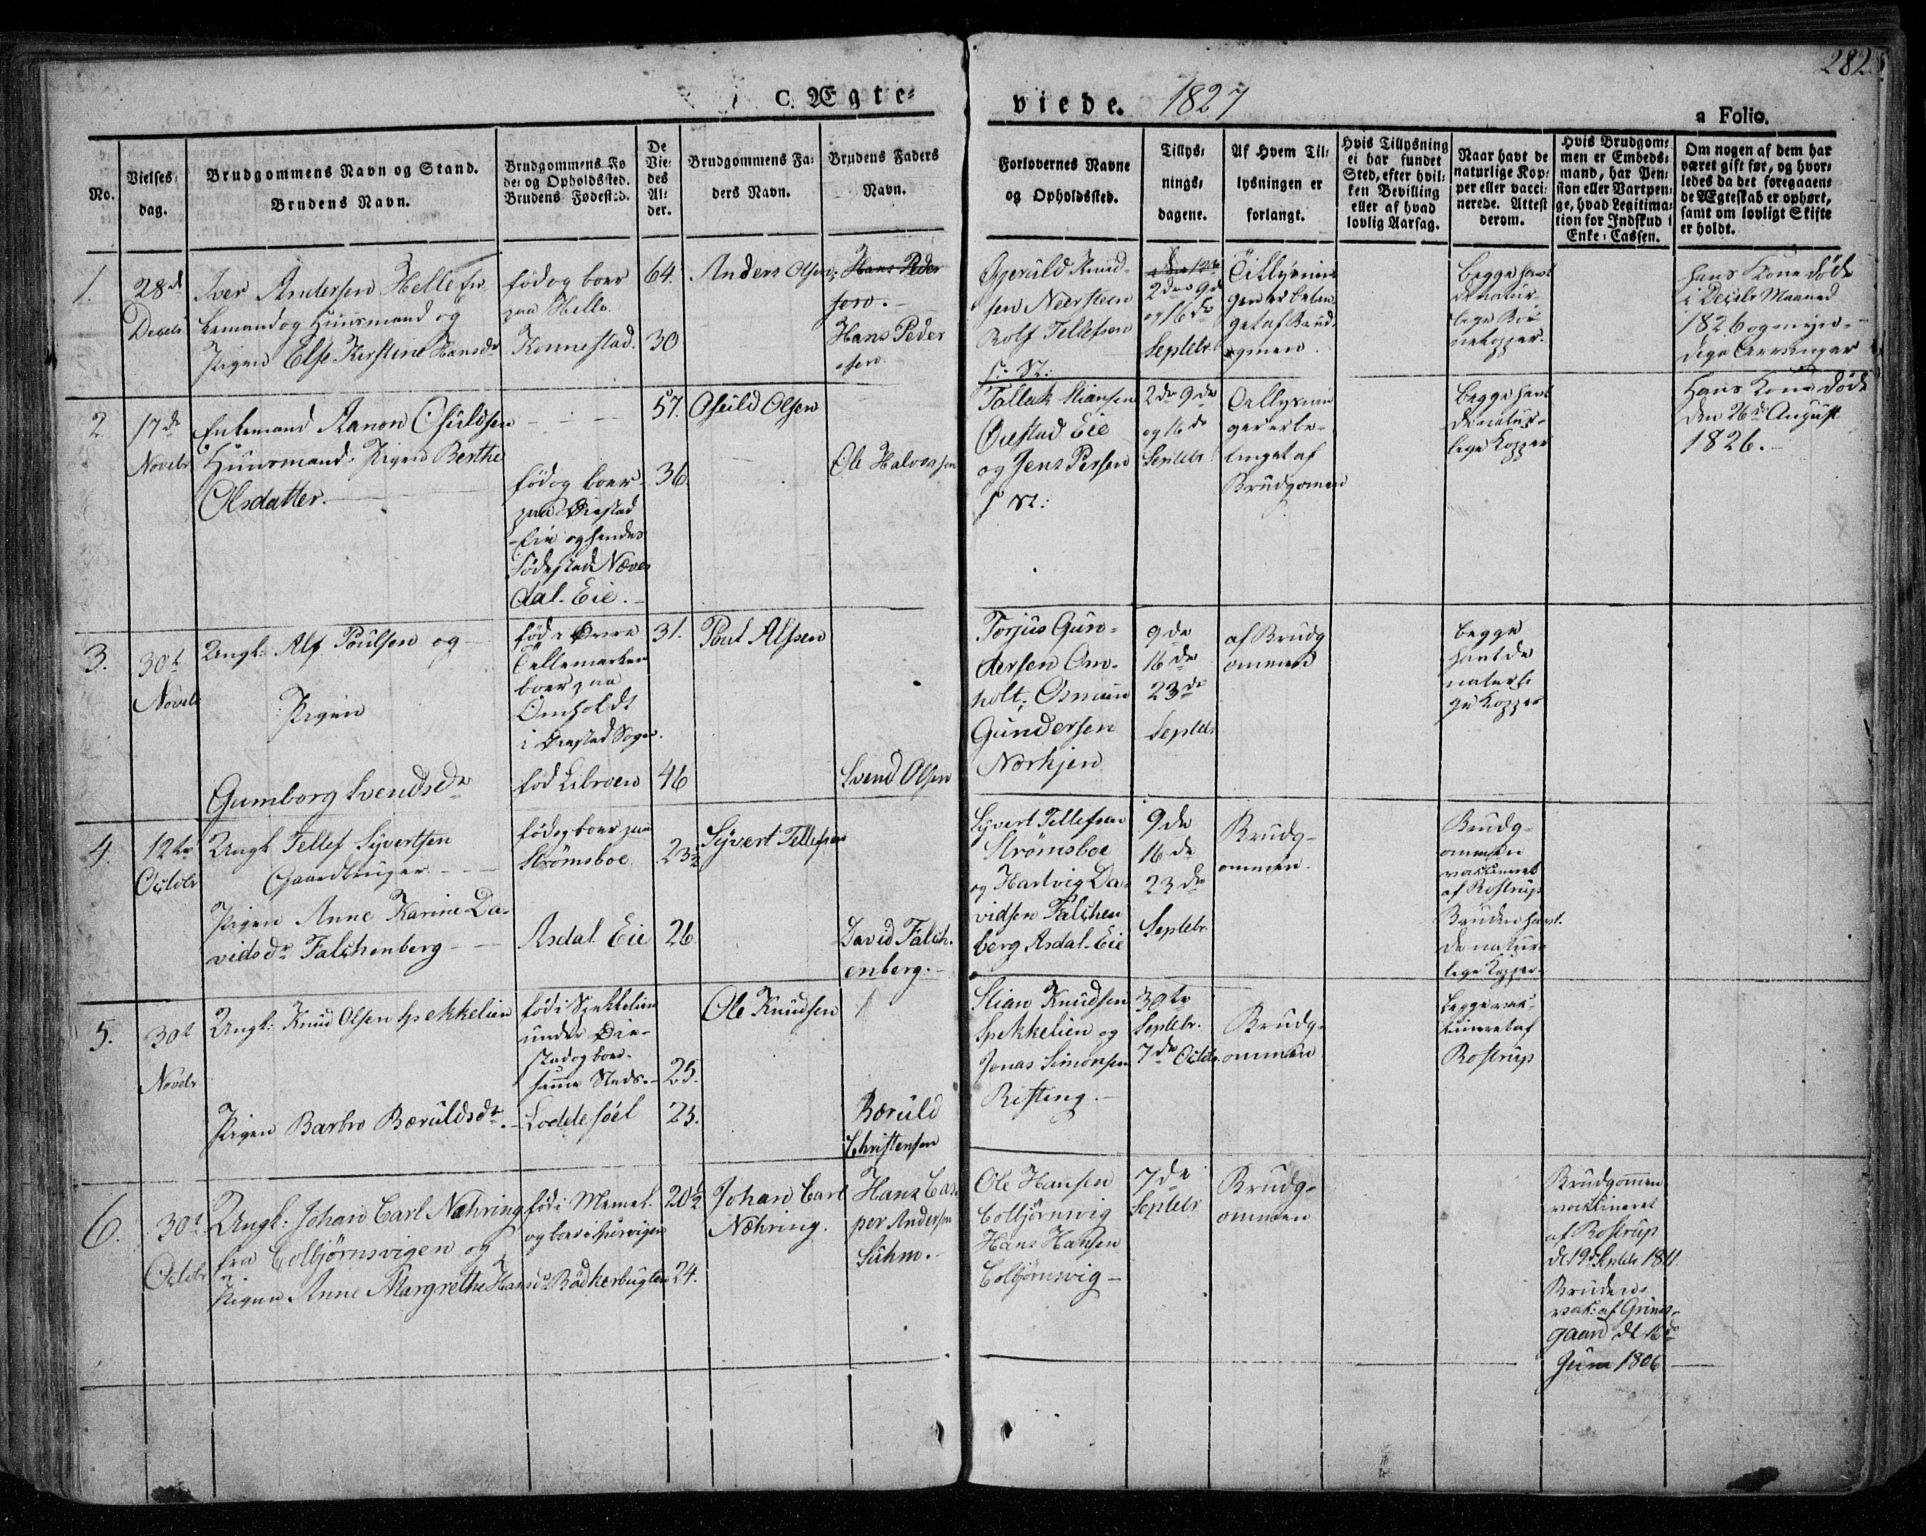 282
C. Ægte-
viede. 1827
a Folio.
No.
Vielses-
dag.
Brudgommens Navn og Stand.
Brudens Navn.
Brudgommens Fø
de- og Opholdssted.
Brudens Fødested.
De
Vie-
des
Al-
der.
Brudgommens Fa-
ders Navn.
Brudens Faders
Navn.
Forlovernes Navne
og Opholdssted.
Tillys-
nings-
dagene.
Af Hvem Til-
lysningen er
forlangt.
Hvis Tillysning
ei har fundet
Sted, efter hvil-
ken Bevilling
eller af hvad
lovlig Aarsag.
Naar havt de
naturlige Kop-
per eller vacci-
nerede. Attest
derom.
Hvis Brudgom-
men er Embeds-
mand, har Pen-
sion eller Vartpen-
ge, hvad Legitima-
tion for Indskud i
Enke-Cassen.
Om nogen af dem har
været gift før, og hvor-
ledes da det foregaaen-
de Ægteskab er ophørt,
samt om lovligt Skifte
er holdt.
1.
28de
Decebr
Iver Andersen Helle En-
kemand og Huusmand og
Pigen Else Kirstine Hansdr
fød og boer
paa Helle.
Kennestad.
64.
30
Anders Olsen;
Hans Peder
sen.
Hans Peder
sen.
Gjeruld Knud-
sen Neersteen
Rolf Tellefsen
s: St:
2den 9de
og 16de
Septebr.
Tillysnin
gen er betin
get af Brud-
gomen.
Begge havt
de natur-
lige Bør
nekopper.
Hans Kone døde
i Decebr Maaned
1826 og
2.
17de
Novebr
Enkemand Aanon Osuldsen
Huusmand. Pigen Berthe
Olsdatter.
fød og boer
paa Øiestad
Eie og hendes
Fødested Næves
dal. Eie.
57.
36.
Osuld Olsen
Ole Halvorsen
Tallak Stiansen
Øiestad Eie
og Jens Persen
s St:
2de 9de
og 16de
Septebr.
Tillysnin
ger er be-
tinget af
Brudgomen
Begge havt
de natur-
lige Kopper
Hans Kone døde
den 26de August
1826.
3.
30t
Novebr
Ungk: Alf Poulsen og
Pigen
Gumborg Svendsdr
fød i Øvre
Tellemarken
boer paa
Omholdt
i Øiestad Sogn.
fød Libroen
31.
46
Poul Alfsen
Svend Olsen
Torjus Gun-
dersen Om-
holt, Osmun
Gundersen
Nørhjen
9de
16de
23de
Septebr
af Brudg
ommen
begge
havt de
naturli
ge Kopper
4.
12te
Octobr
Ungk Tellef Syvertsen
Gaardbruger
Pigen Anne Karine Da-
vidsdr Falchenberg
fød og boer paa
Strømsboe.
Asdal Eie
23½
26
Syvert Tellefsen
David Falch-
enberg.
Syvert Tellefsen
Strømsboe
og Hartvig Da-
vidsen Falchen
berg Asdal Eie
9de
16de
23de
Septebr
Brudg-
ommen.
Brudg-
ommen
vakkineret
af Rostrup
Bruden havt
de natur-
lige Kopper.
5.
30t
Novebr
Ungk: Knud Olsen Spekkelien
Pigen Barbro Bæruldsdt.
fød i Spekkelien
under Øie-
stad og boer
samme Steds.
Loddesöel
25.
25.
Ole Knudsen
Bæruld
Christensen
Stian Knudsen
Spekkelien og
Jonas Simonsen
Risting.
30te
Septebr.
7de Octobr.
Brudg-
ommen
begge vak-
kineret af
Rostrup
6.
30t
Octobr
Ungk: Johan Carl Næhring
fra Colbjørnsvigen og
Pigen Anne Margrethe Hansdr
fød i Memel
og boer i
Bødkerbugten
20½
24.
Johan Carl
Næhring.
Hans Cas
per Andersen
Suhm.
Ole Hansen
Colbjørnsvig
Hans Hansen
Colbjørnsvig
7de
Septebr
Brudg-
ommen
Brudgommen
vakkineret
af Rostrup
d 19de Septebr 1811.
Bruden
vak: af Grims-
gaard d 16de
Juni 1806